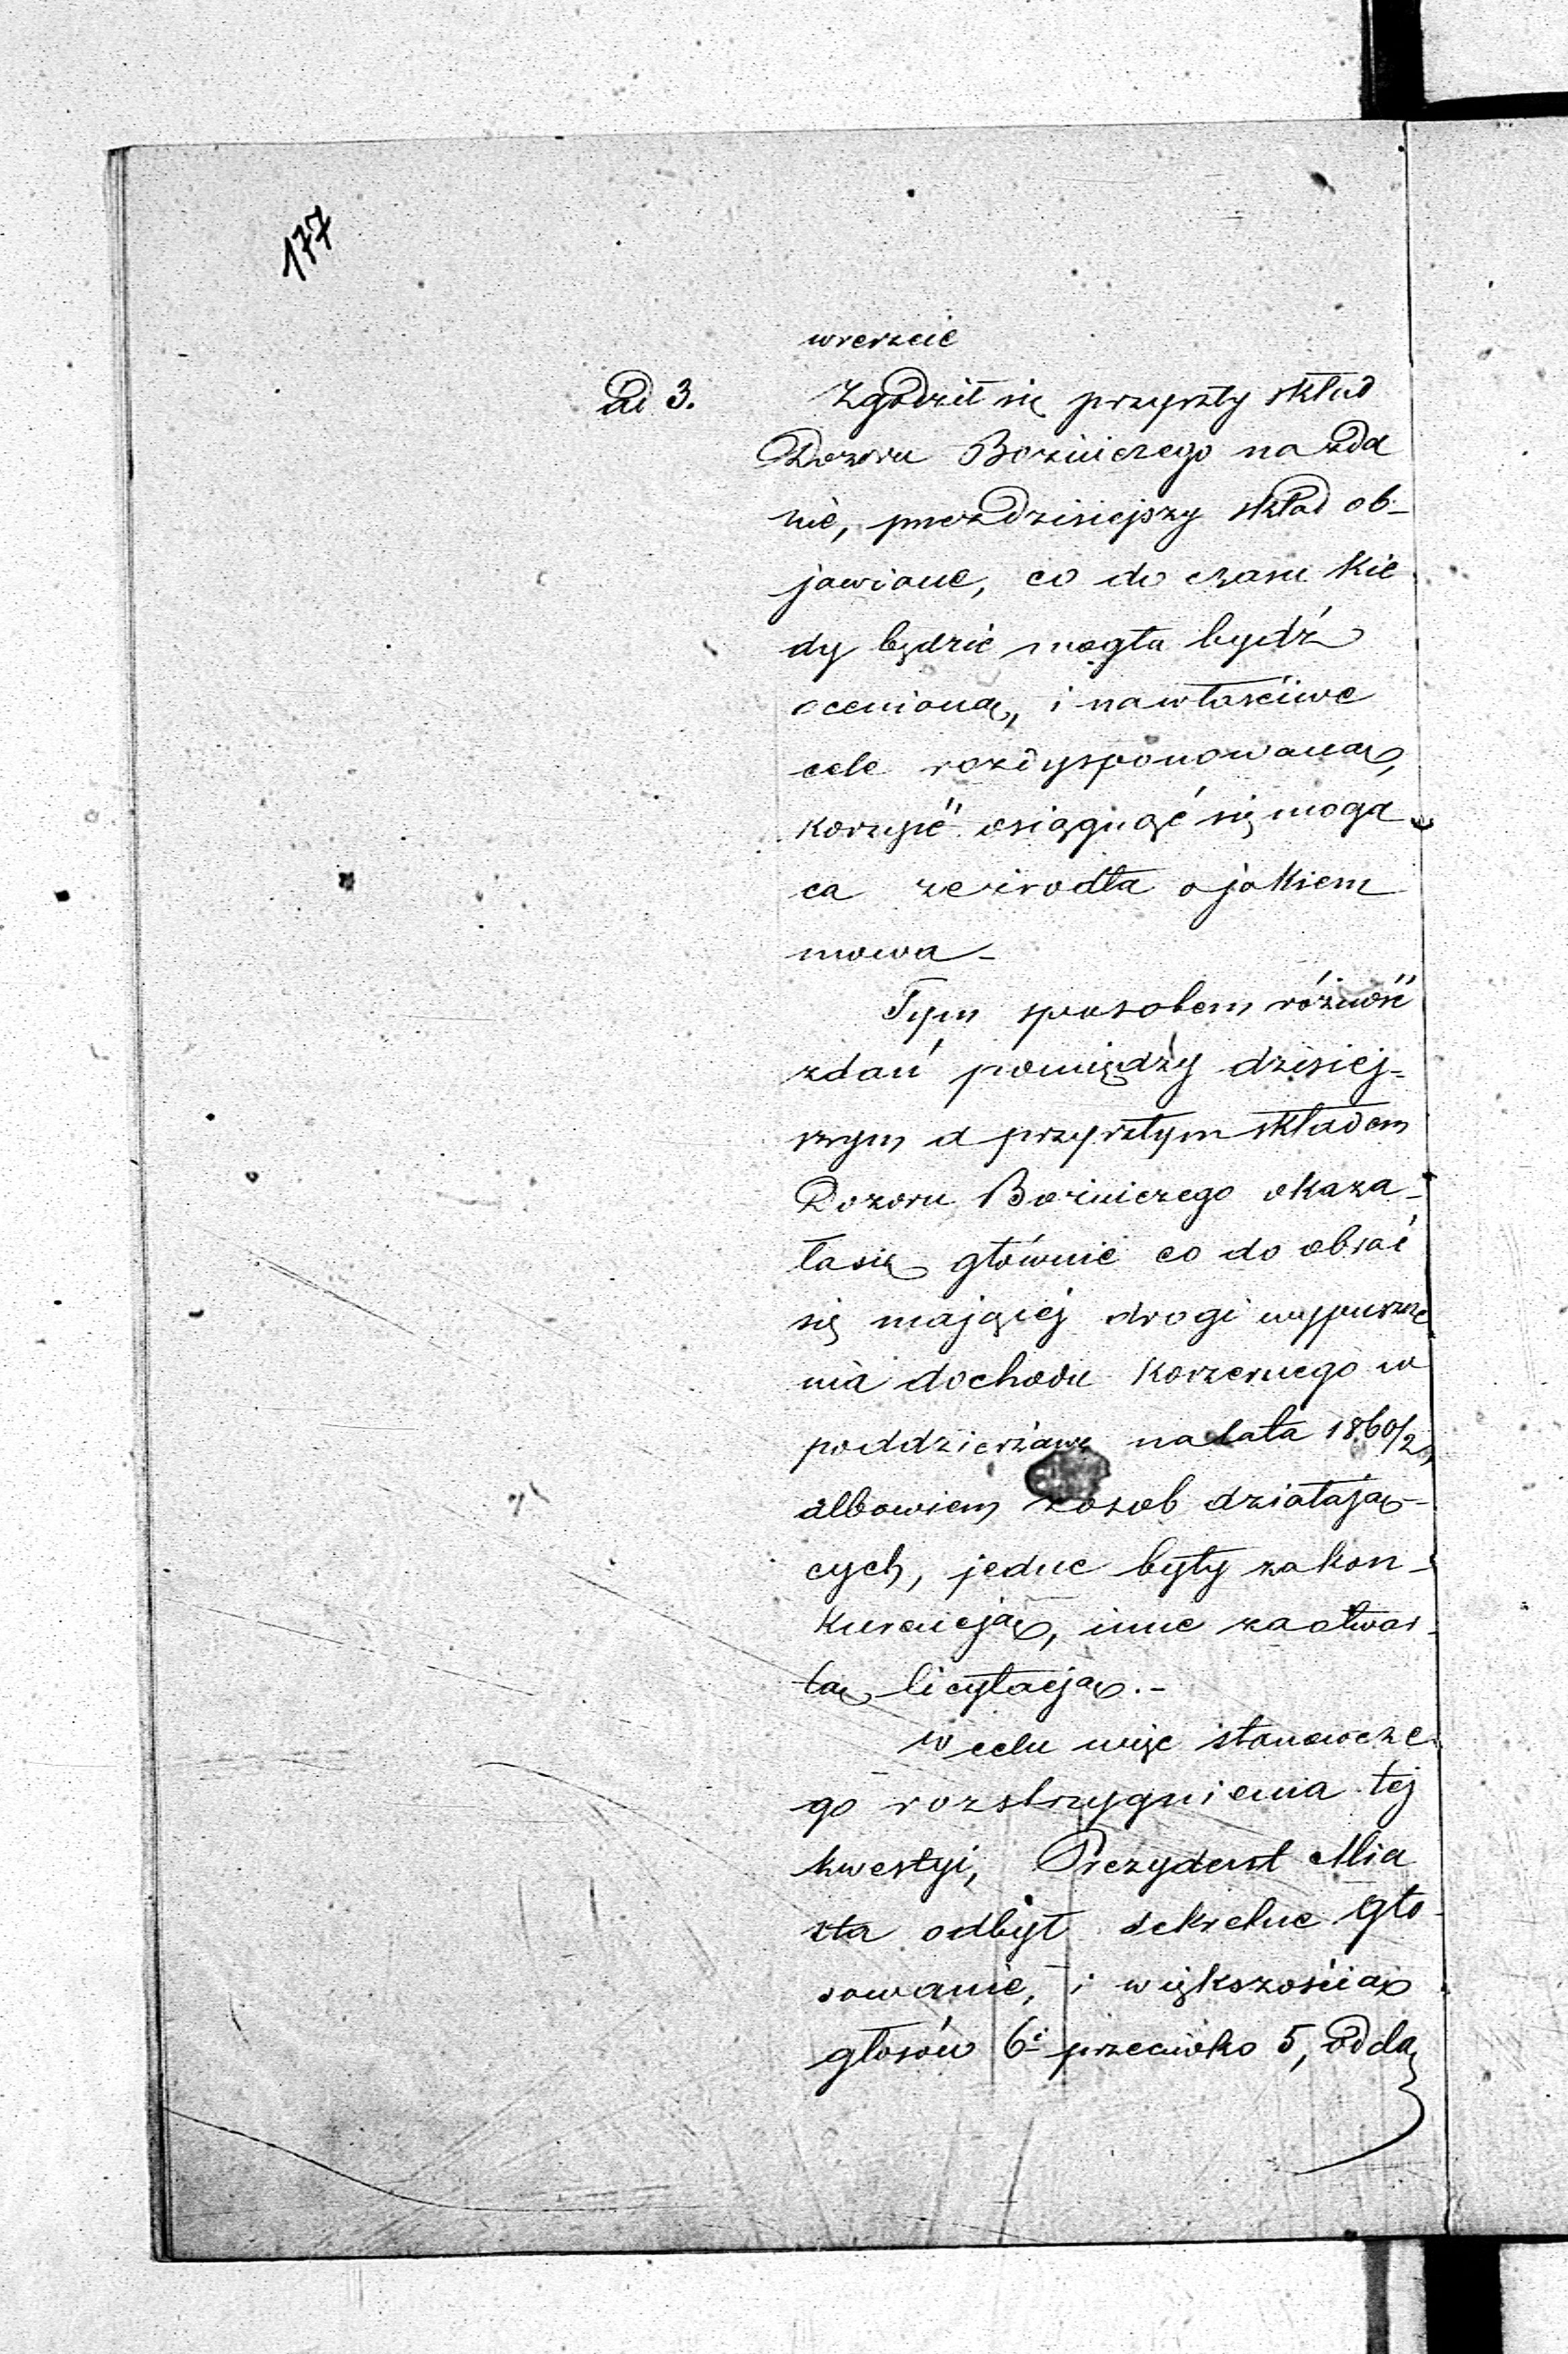 177
wreszcie
ad 3. Zgodził się przyszły skład
Dozoru Bożniczego na zda
nie, przez dzisiejszy skład ob-
jawione, co do czasu kie
dy będzie mogła bydź
ocenioną, i na właściwe
cele rozdysponowaną,
korzyść osiągnąć się mogą
ca ze źrodła o jakiem
mowa -
Tym sposobem różność
zdań pomiędzy dzisiej-
szym a przyszłym składem
Dozoru Bożniczego okaza-
ła się głównie co do obrać
się mającej drogi wypuszcze
nia dochodu koszernego w
poddzierżawę na lata 1860/2,
albowiem z osob działają-
cych, jedne były za kon-
kurencją, inne za otwar-
tą licytacją.-
W celu więc stanowcze
go rozstrzygnienia tej
kwestyi, Prezydent Mia
sta odbył sekretne gło-
sowanie, i większością
głosów 6i przeciwko 5, odda